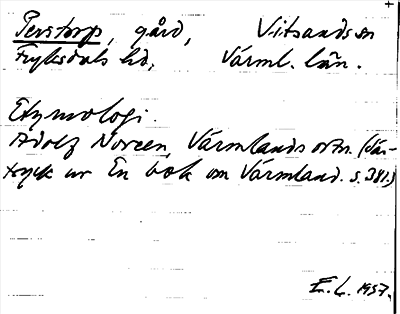 Perstorp, gård, Vitsands sn
Fryksdals hd, Värml. län.
Etymologi.
Adolf Noreen, Värmlands ortn. (Sär-
tryck ur En bok om Värmland. s. 381.)
E.L. 1957.